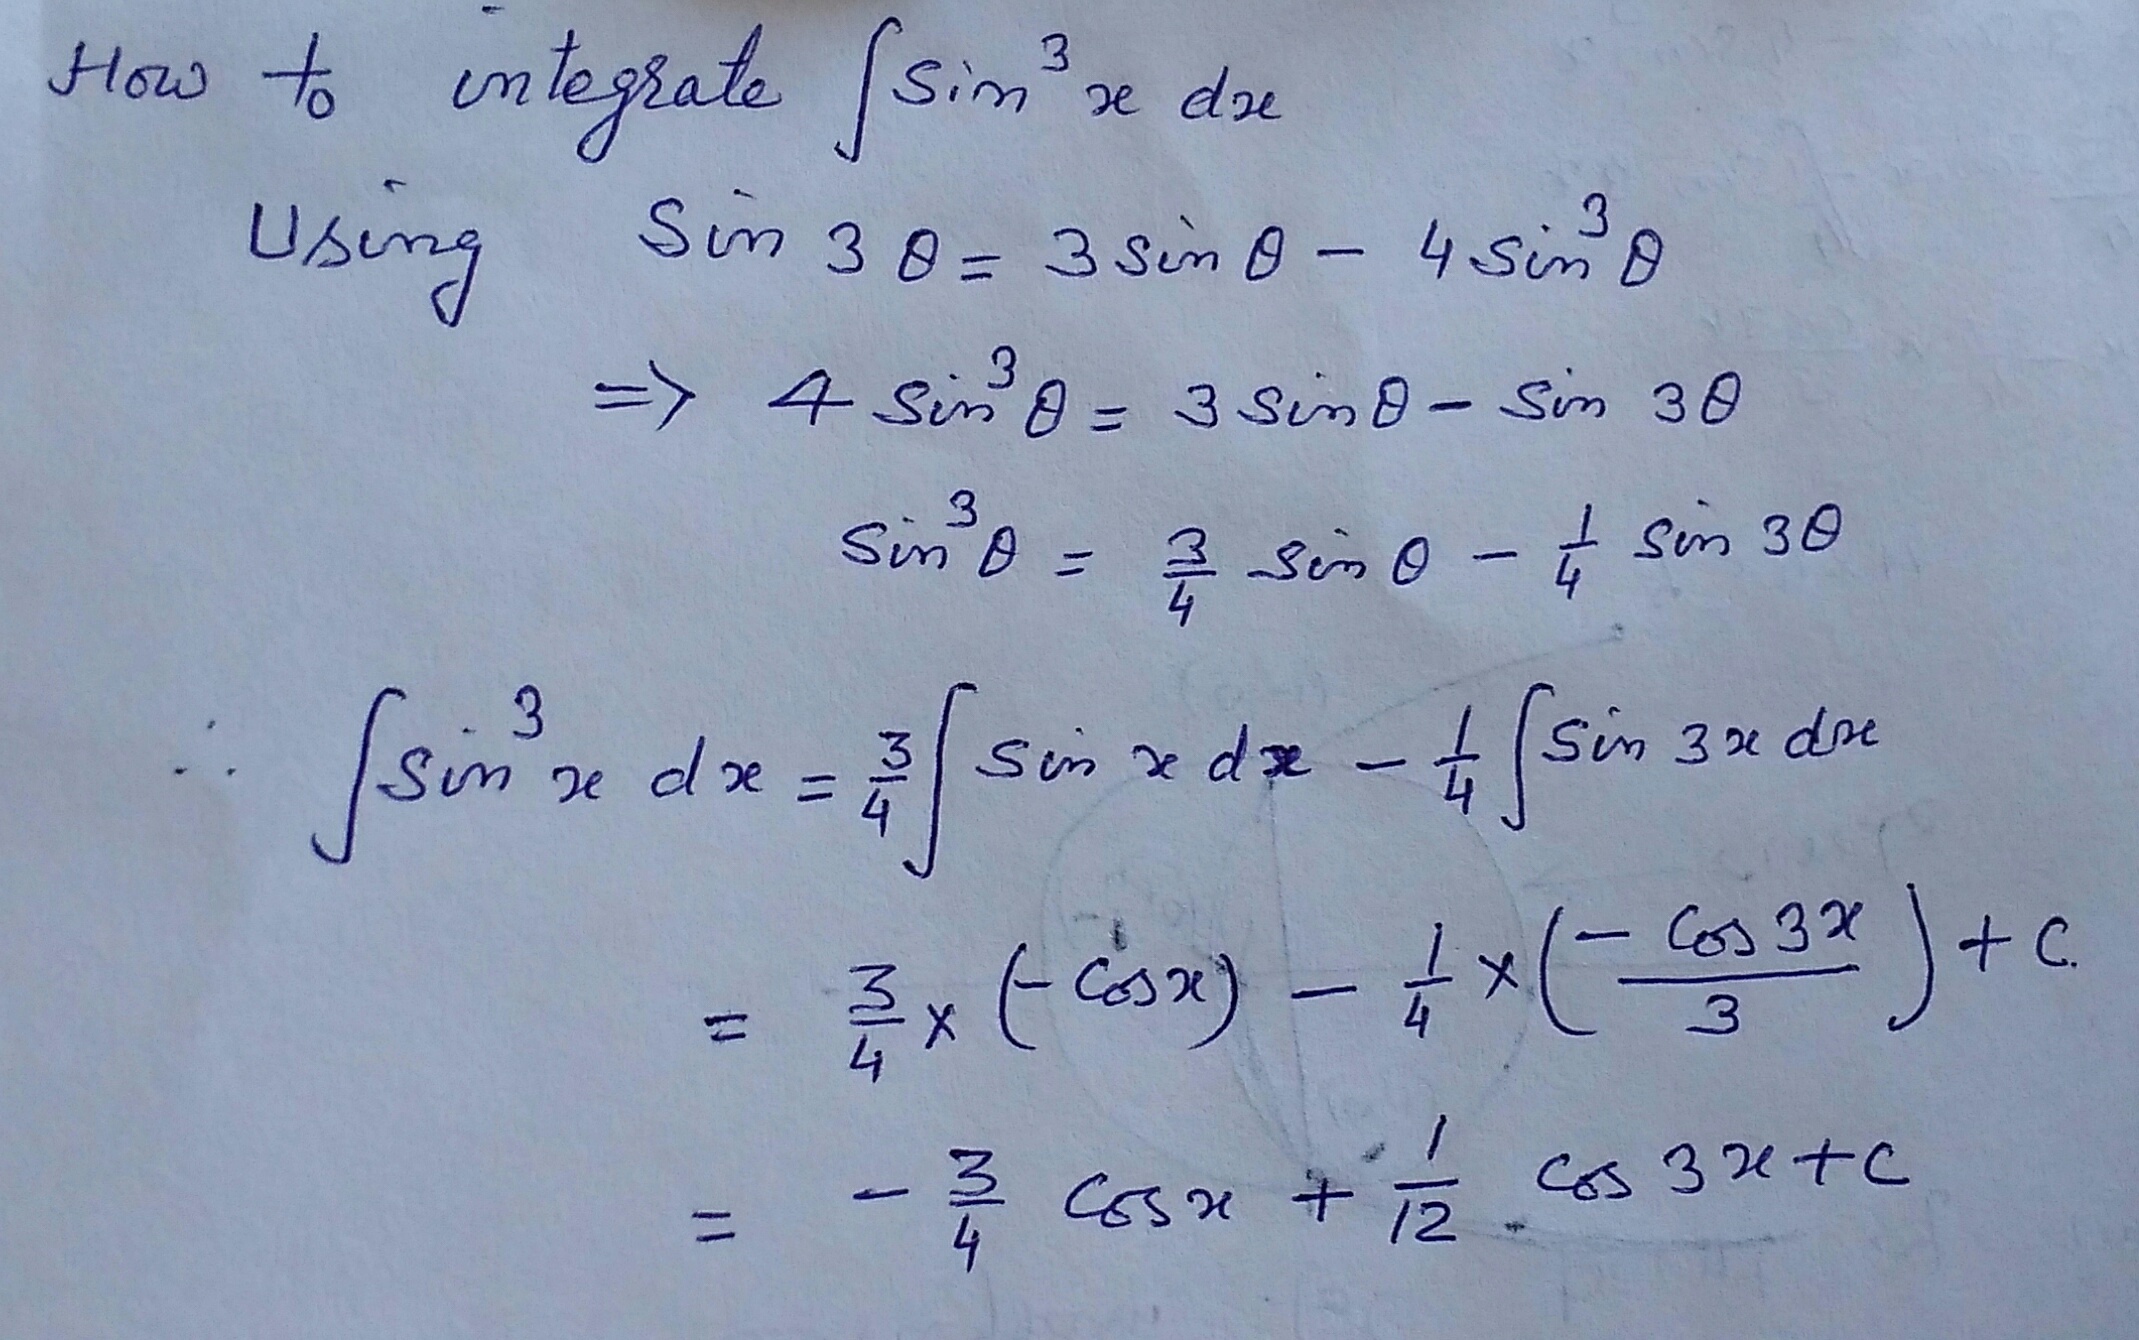 How to integrate ∫ sin³ x dx
Using Sin 3θ = 3 sin θ − 4 sin³ θ
=> 4 sin³ θ = 3 sin θ − sin 3θ
Sin³ θ = 3/4 sin θ − 1/4 sin 3θ
∴ ∫ sin³ x dx = 3/4 ∫ sin x dx − 1/4 ∫ sin 3x dx
= 3/4 × (− Cos x) − 1/4 × (− Cos 3x / 3) + C.
= − 3/4 Cos x + 1/12 Cos 3x + C